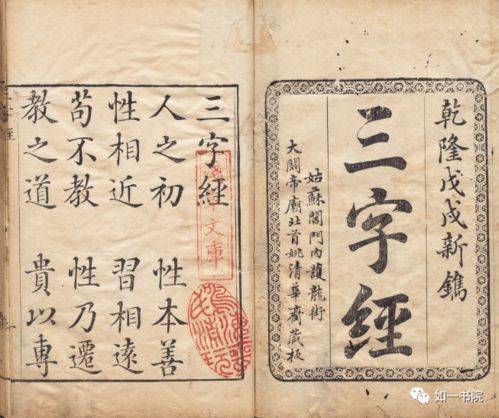 乾隆戊戌新鐫
三字經
姑蘇閶門內護龍街
大關帝廟北首姚清華齋藏板
三字經
人之初 性本善
性相近 習相遠
苟不教 性乃遷
教之道 貴以專
文庫
如一书院